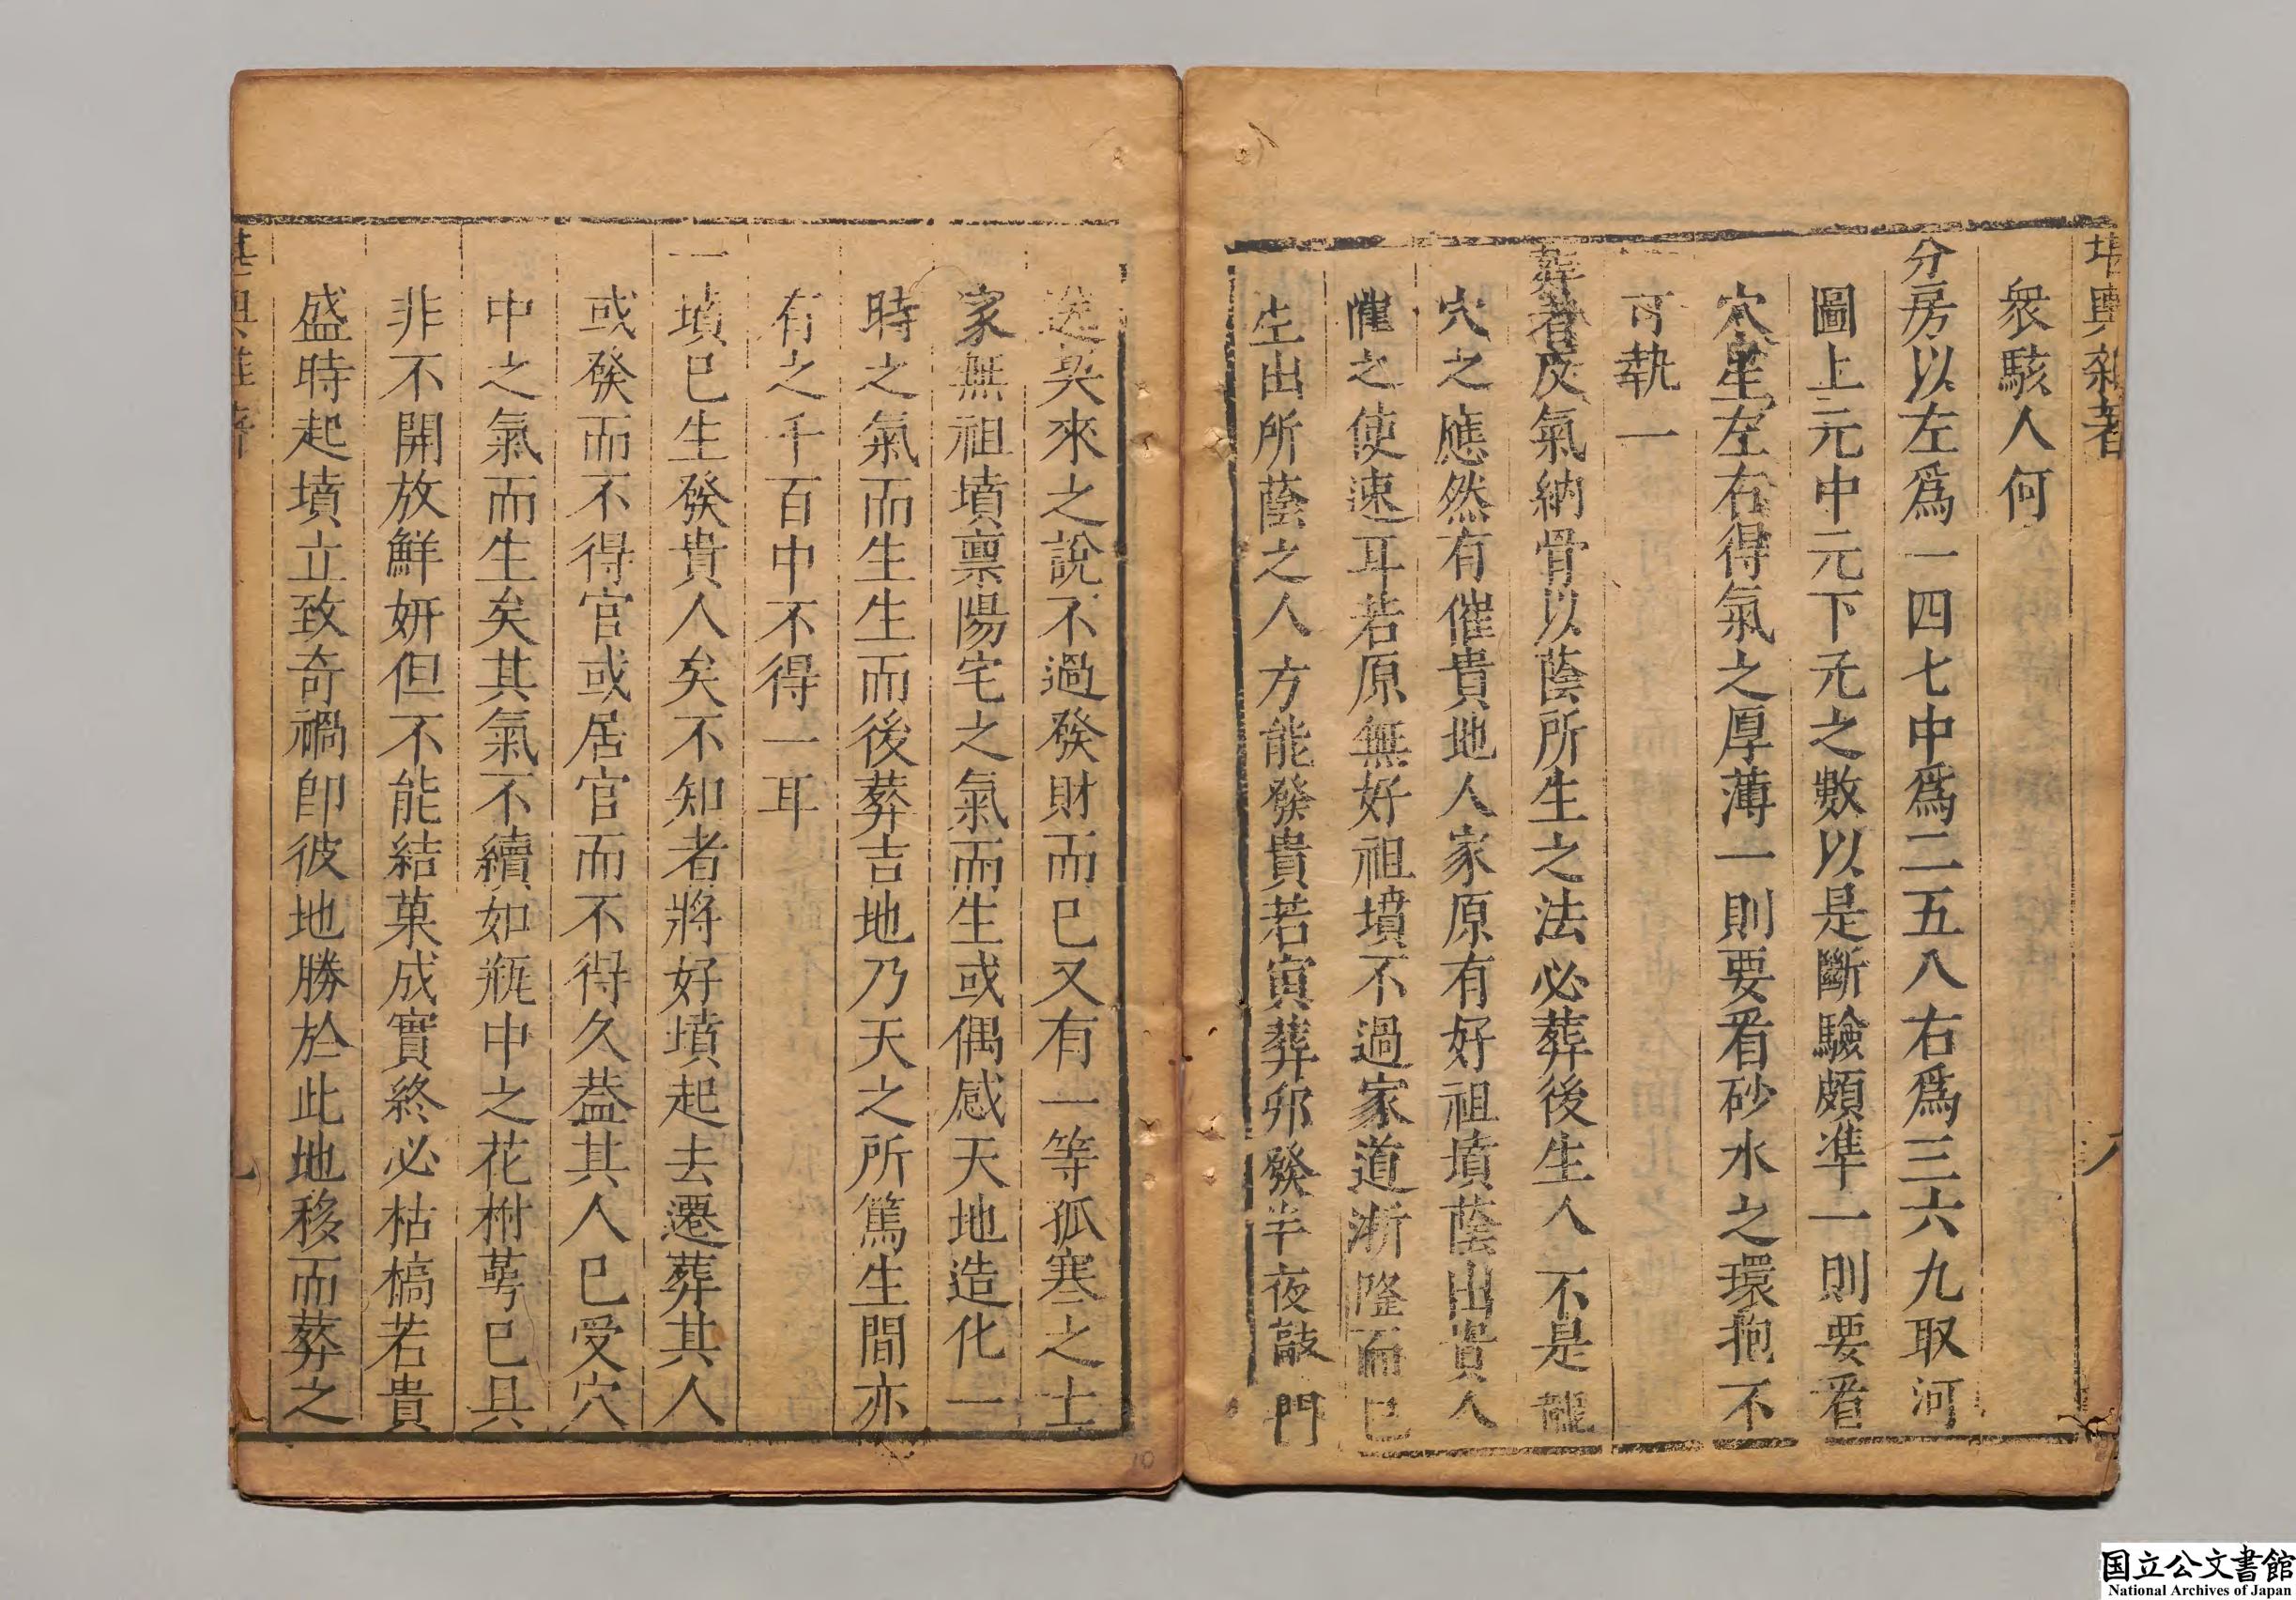 堪輿雜著
八
衆駭人何
分房以左爲一四七中爲二五八右爲三六九取河
圖上元中元下元之數以是斷驗頗準一則要看
穴星左右得氣之厚薄一則要看砂水之環抱不
可執一
葬者反氣納骨以蔭所生之法必葬後生人不是龍
穴之應然有催貴地人家原有好祖墳蔭出貴人
催之使速耳若原無好祖墳不過家道漸隆而已
生出所蔭之人方能發貴若寅葬卯發半夜敲門
送契來之說不過發財而已又有一等孤寒之士
家無祖墳禀陽宅之氣而生或偶感天地造化一
時之氣而生生而後葬吉地乃天之所篤生間亦
有之千百中不得一耳
一墳已生發貴人矣不知者將好墳起去遷葬其人
或發而不得官或居官而不得久葢其人已受穴
中之氣而生矣其氣不續如瓶中之花柎萼已具
非不開放鮮妍但不能結菓成實終必枯槁若貴
盛時起墳立致奇禍卽彼地勝於此地移而葬之
堪輿雜著
10
国立公文書館
National Archives of Japan